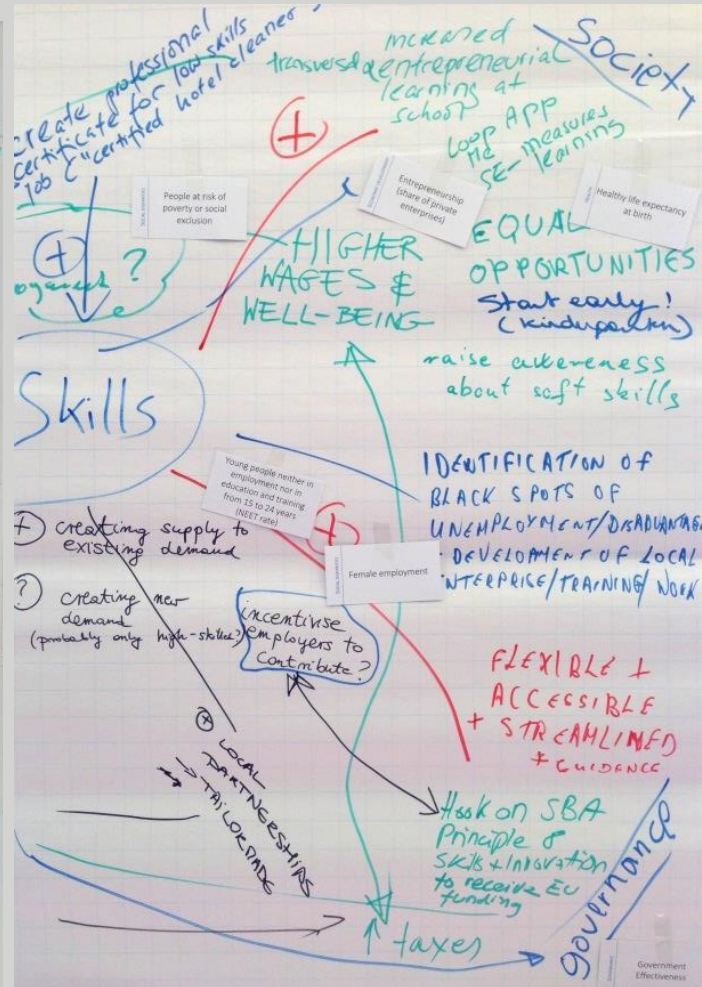 create professional
certificate for low skills
job ("certified hotel cleaner"
increased
transversal entrepreneurial
learning at
school
Society
Loop App
SE- measures
learning
People at risk of
poverty or social
exclusion
Entrepreneurship
(share of private
enterprises)
Healthy life expectancy
at birth
+
+
?
HIGHER
WAGES &
WELL-BEING
EQUAL
OPPORTUNITIES
Start early!
raise awereness
about soft skills
Skills
Young people neither in
employment nor in
education and training
from 15 to 24 years
(NEET rate)
+
IDENTIFICATION OF
BLACK SPOTS OF
UNEMPLOYMENT/DISADVANTAGE
DEVELOPMENT OF LOCAL
NTERPRISE/TRAINING/WORK
Female employment
+ creating supply to
existing demand
? creating new
demand
(probably only high-skilled?)
incentivise
employers to
contribute?
FLEXIBLE +
ACCESSIBLE
+ STREAMLINED
+ GUIDANCE
+ LOCAL
PARTNERSHIPS
→ TAILORMADE
Hook on SBA
Principle 8
Skills + Innovation
to receive EU
funding
↑ taxes
governance
Government
Effectiveness